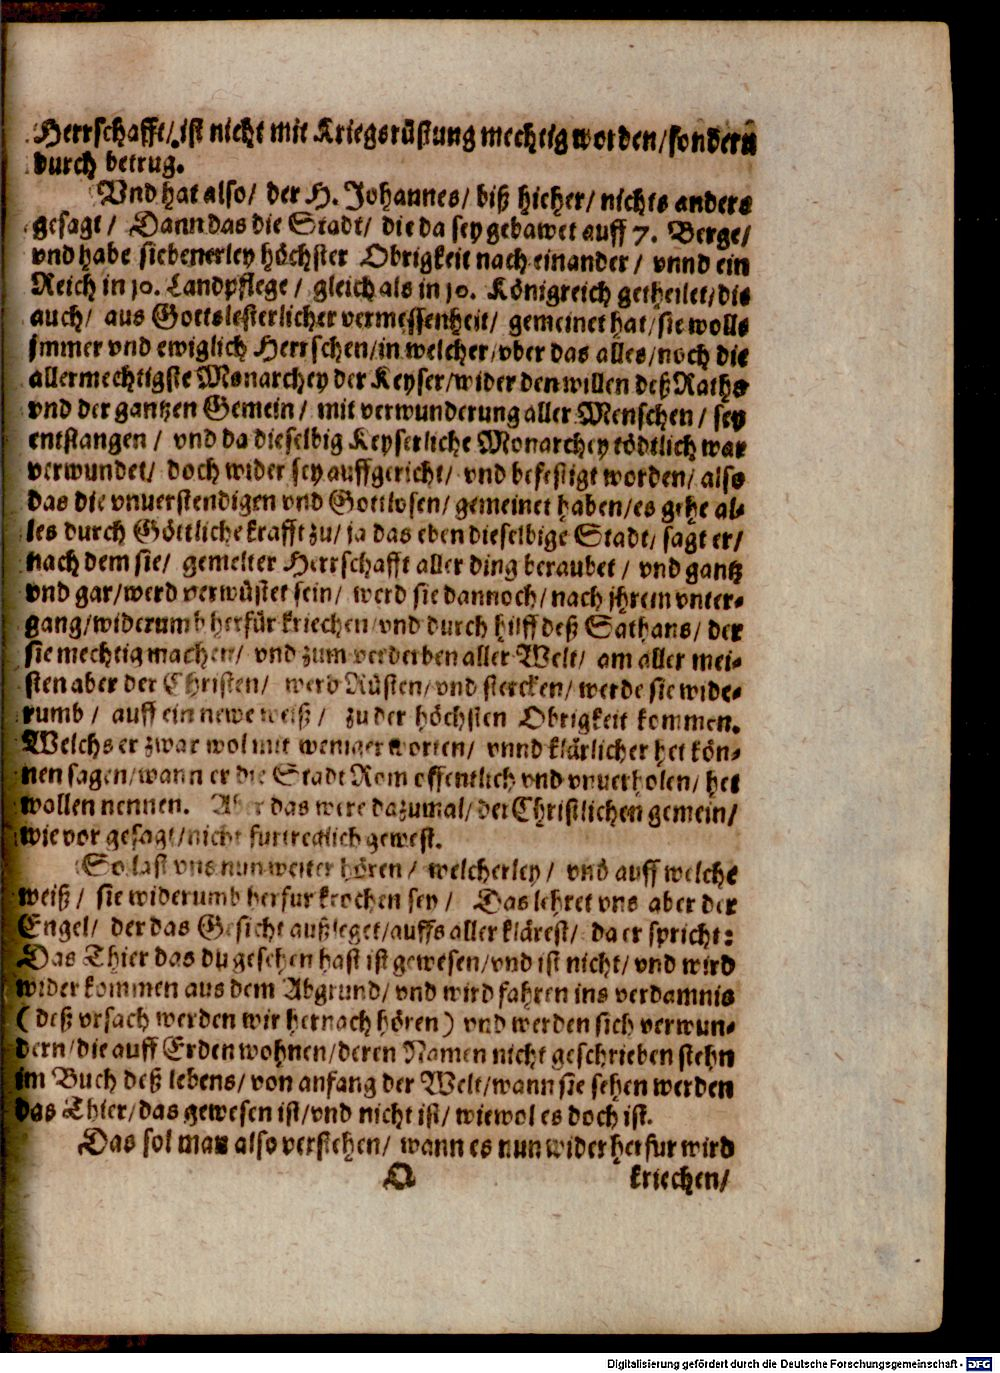 Herrschafft/ ist nicht mit Kriegsrüstung mechtig worden/ sondern
durch betrug.
Vnd hat also/ der H. Johannes/ biß hieher/ nichts anders
gesagt/ Dann das die Stadt/ die da sey gebawet auff 7. Berge/
vnd habe siebenerley höchster Obrigkeit nach einander/ vnnd ein
Reich in 10. Landpflege/ gleich als in 10. Königreich getheilet/ die
auch/ aus Gottslesterlicher vermessenheit/ gemeinet hat/ sie wolls
jmmer vnd ewiglich Herrschen/ in welcher/ vber das alles/ noch die
allermechtigste Monarchey der Keyser/ wider den willen deß Raths
vnd der gantzen Gemein/ mit verwunderung aller Menschen/ sey
entstangen/ vnd da dieselbig Keyserliche Monarchey tödtlich war
verwundet/ doch wider sey auffgericht/ vnd befestigt worden/ also
das die vnuerstendigen vnd Gottlosen/ gemeinet haben/ es gehe al-
les durch Göttliche krafft zu/ ja das eben dieselbige Stadt/ sagt er/
nach dem sie/ gemelter Herrschafft aller ding beraubet/ vnd gantz
vnd gar/ werd verwüstet sein/ werd sie dannoch/ nach jhrem vnter-
gang/ widerumb herfür kriechen/ vnd durch hilff deß Sathans/ der
sie mechtig machen/ vnd zum verderben aller Welt/ am aller mei-
sten aber der Christen/ werd Rüsten/ vnd stercken/ werde sie wide-
rumb/ auff ein newe weiß/ zu der höchsten Obrigkeit kommen.
Welchs er zwar wol mit weniger worten/ vnnd klärlicher het kön-
nen sagen/ wann er die Stadt Rom offentlich vnd vnuerholen/ het
wollen nennen. Aber das were dazumal/ der Christlichen gemein/
wie vor gesagt/ nicht furtreglich gewest.
So last vns nun weiter hören/ welcherley/ vnd auff welche
weiß/ sie widerumb herfur krochen sey/ Das lehret vns aber der
Engel/ der das Gesicht außleget/ auffs aller klärest/ da er spricht:
Das Thier das du gesehen hast ist gewesen/ vnd ist nicht/ vnd wird
wider kommen aus dem Abgrund/ vnd wird fahren ins verdamnis
(deß vrsach werden wir hernach hören) vnd werden sich verwun-
dern/ die auff Erden wohnen/ deren Namen nicht geschrieben stehn
im Buch deß lebens/ von anfang der Welt/ wann sie sehen werden
das Thier/ das gewesen ist/ vnd nicht ist/ wiewol es doch ist.
Das sol man also verstehen/ wann es nun wider herfur wird
Q kriechen/
Digitalisierung gefördert durch die Deutsche Forschungsgemeinschaft - DFG